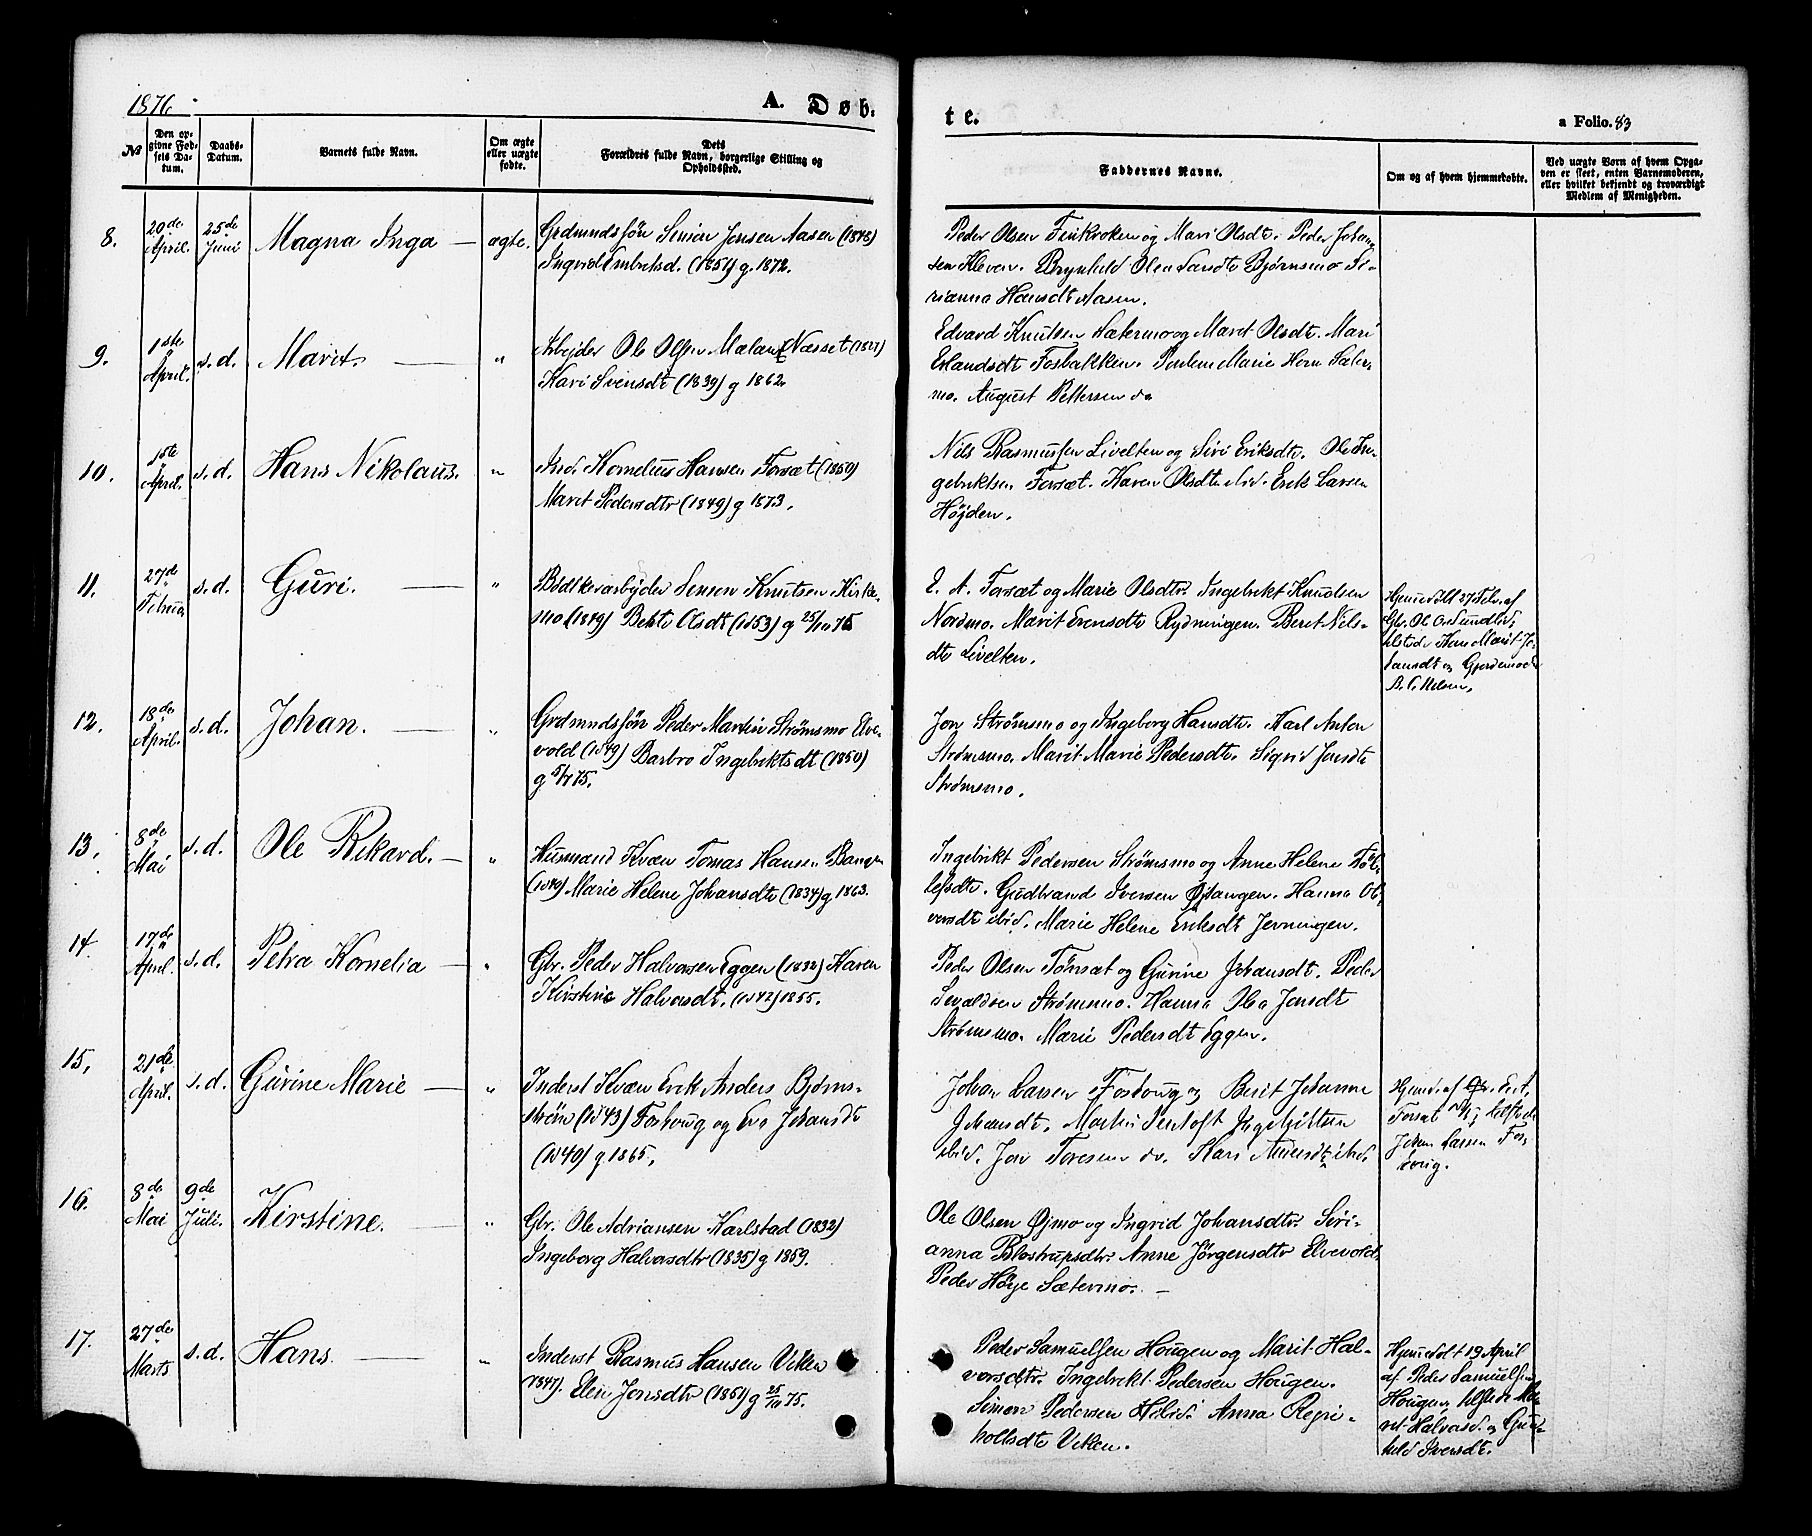 1876.
A. Døb-
te.
a Folio. 83
No
Den op-
givne Fød-
sels Da-
tum.
Daabs-
Datum.
Barnets fulde Navn.
Om ægte
eller uægte
fødte.
Dets
Forældres fulde Navn, borgerlige Stilling og
Opholdssted.
Faddernes Navne.
Om og af hvem hjemmedøbte.
Ved uægte Børn af hvem Opga-
ven er skeet, enten Barnemoderen,
eller hvilket bekjendt og troværdigt
Medlem af Menigheden.
8.
20de April.
25de Juni
Magna Inga —
ægte.
Grdmndssøn Simon Jensen Aasen (1848)
Ingrid Embretsd. (1851) g. 1872.
Peder Olsen Finkroken og Mari Olsdt. Peder Johan-
sen Kleven. Brynhild Olea Larsdtr Bjørnsmo
rianna Hansdt Aasen.
9.
1ste April.
s.d.
Marit. —
"
Arbejder Ole Olsen Mælen Næsset (1821)
Kari Svensdt (1839) g 1862.
Edvard Knutsen Sætermo og Maret Olsdt. Mari
Erlandsdt Fosbakken. Marie Horn Sæter-
mo. August Pettersen do
10.
1ste April.
s.d.
Hans Nikolaus.
"
Ind. Kornelius Hansen Forsæt (1850)
Maret Pedersdtr (1849) g 1873.
Nils Rasmussen Livelten og Siri Eriksdt. Ole In-
gebriktsen Forsæt. Karen Olsdt ibid. Erik Larsen
Højden.
11.
27de
s.d.
Guri. —
"
Simon Knutsen Kirke-
mo (1849) Berte Olsdt (1853) g 25/10 75
E. A. Forsæt og Marie Olsdtr. Ingebrikt Knudsen
Nordmo. Marit Evensdtr Rydningen. Beret Nils-
dtr Livelten.
Hjemmedøbt 27 Febr. af
Gbr. Ole
Marit Jo-
hansdt og Gjordemoder
Nelsen.
12.
18de April.
s.d.
Johan. —
"
Grdmndssøn Peder Martin Strømsmo Elve-
vold (1849) Barbro Ingebriktsdt (1850)
g 75.
Jon Strømsmo og Ingeborg Hansdtr. Karl Anton
Strømsmo. Marit Marie Pedersdt. Sigrid Jonsdt
Strømsmo.
13.
8de Mai
s.d.
Ole Rikard. —
"
Husmand Kvæn Tomas Hansen
(1840) Marie Helene Johansdtr (1834) g 1863.
Ingebrikt Pedersen Strømsmo og Anne Helene Tol-
lefsdtr. Gudbrand Iversen Øvangen. Hanna Ol-
versdt ibid. Marie Helene Eriksdt Jerningen.
14.
17de April.
s.d.
Petra Kornelia —
"
Gbr. Peder Halvorsen Eggen (1832) Karen
Kirstine Halversdt. (1842) 1855.
Peder Olsen Fossæt og Gurine Johansdt. Peder
Sevaldsen Strømsmo. Hanna Olea Jonsdt
Strømsmo. Marie Pedersdt Eggen.
15,
21de April.
s.d.
Gurine Marie —
"
Inderst Kvæn Erik Anders Bjørns-
strøm (1843) Foshoug og Eva Johansdt
(1840) g 1865.
Johan Larsen Foshoug og Berit Johanna
Johansdt. Martin
ibid. Jon Toresen do. Kari ibid.
Hjemd. af
Forsæt
Johan Larsen Fos-
houg.
16.
8de Mai
9de Juli.
Kirstine. —
"
Gbr. Ole Adriansen Karlstad (1832)
Ingeborg Halvorsdtr (1835) g 1859.
Ole Olsen Øjmo og Ingrid Johansdtr. Siri-
anna Blostrupsdtr. Anne Jørgensdtr Elvevold.
Peder Høye Sætermo. —
17.
27de Marts
s.d.
Hans. —
"
Inderst Rasmus Hansen Viken
1847). Elen Jonsdtr (1851) g 25/10 75.
Peder Samuelsen Hougen og Marit Hal-
vorsdtr. Ingebrikt Pedersen Hougen.
Simon Pedersen ibid. Anna Regi-
Viken.
Hjemmedøbt 19 April
af Peder Samuelsen
Hougen, tilstede Ma-
rit Halvorsd. og Gun-
hild Iversdt.